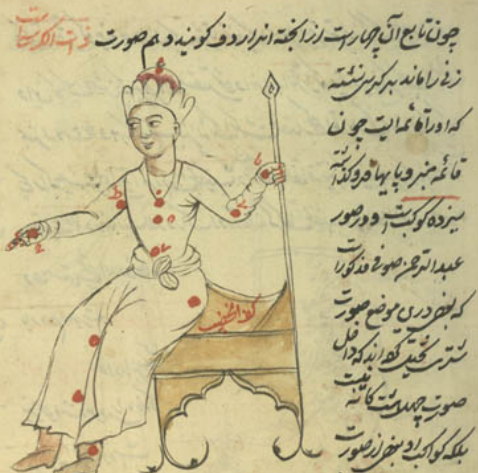 چون تابع آن چهار است از انجهته انرا ردف کویند دهم صورت ذات الکرسی است
زنی را ماند بر کرسی نشسته
که اورا قائمه ایست چون
قائمه منبر و پایها فرو کذاشته
سیزده کوکبست و در صور
عبد الرحمن صوفی مذکور است
که بعضی درین موضع صورت
شتری کرده اند که داخل
صورت چهل و هشت کانه نیست
بلکه کواکب او بعضی از صورت
کف الخضیب